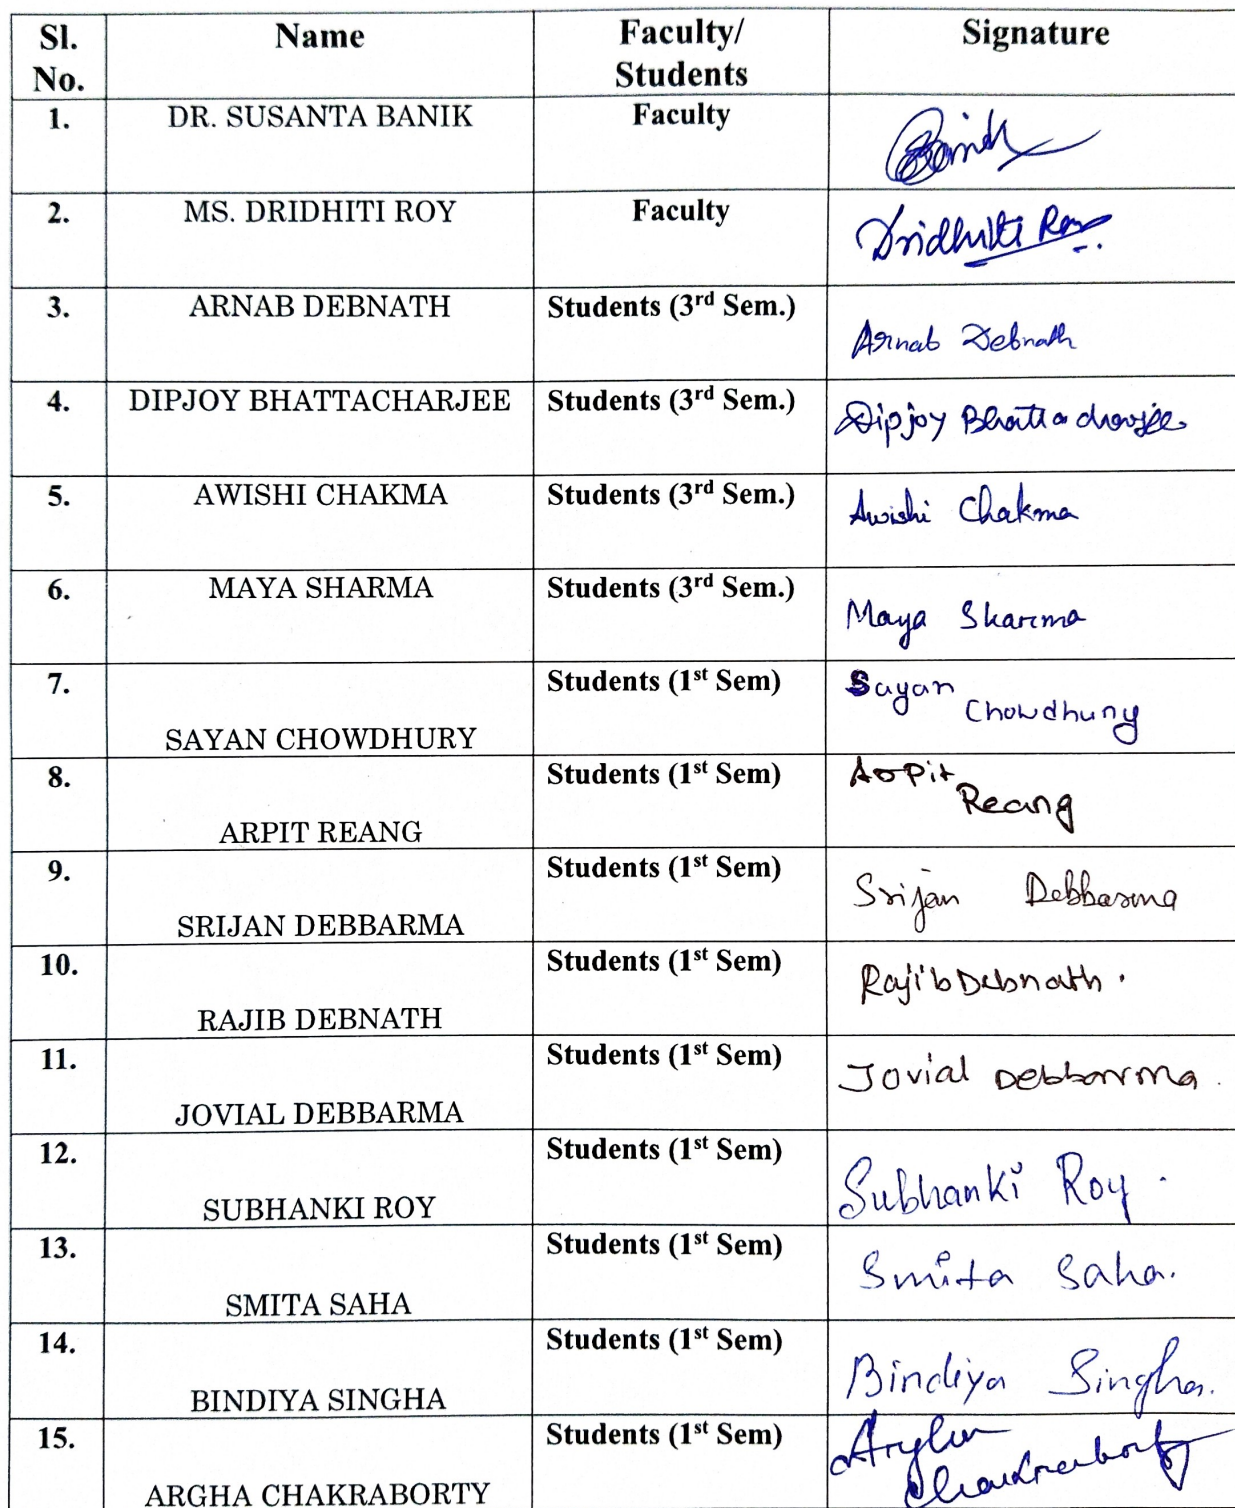 Sl. No. Name Faculty/ Students Signature
1. DR. SUSANTA BANIK Faculty Banik
2. MS. DRIDHITI ROY Faculty Dridhiti Roy
3. ARNAB DEBNATH Students (3rd Sem.) Arnab Debnath
4. DIPJOY BHATTACHARJEE Students (3rd Sem.) Dipjoy Bhattacharjee
5. AWISHI CHAKMA Students (3rd Sem.) Awishi Chakma
6. MAYA SHARMA Students (3rd Sem.) Maya Sharma
7. SAYAN CHOWDHURY Students (1st Sem) Sayan Chowdhury
8. ARPIT REANG Students (1st Sem) Arpit Reang
9. SRIJAN DEBBARMA Students (1st Sem) Srijan Debbarma
10. RAJIB DEBNATH Students (1st Sem) Rajib Debnath.
11. JOVIAL DEBBARMA Students (1st Sem) Jovial Debbarma.
12. SUBHANKI ROY Students (1st Sem) Subhanki Roy.
13. SMITA SAHA Students (1st Sem) Smita Saha.
14. BINDIYA SINGHA Students (1st Sem) Bindiya Singha.
15. ARGHA CHAKRABORTY Students (1st Sem) Argha Chakraborty